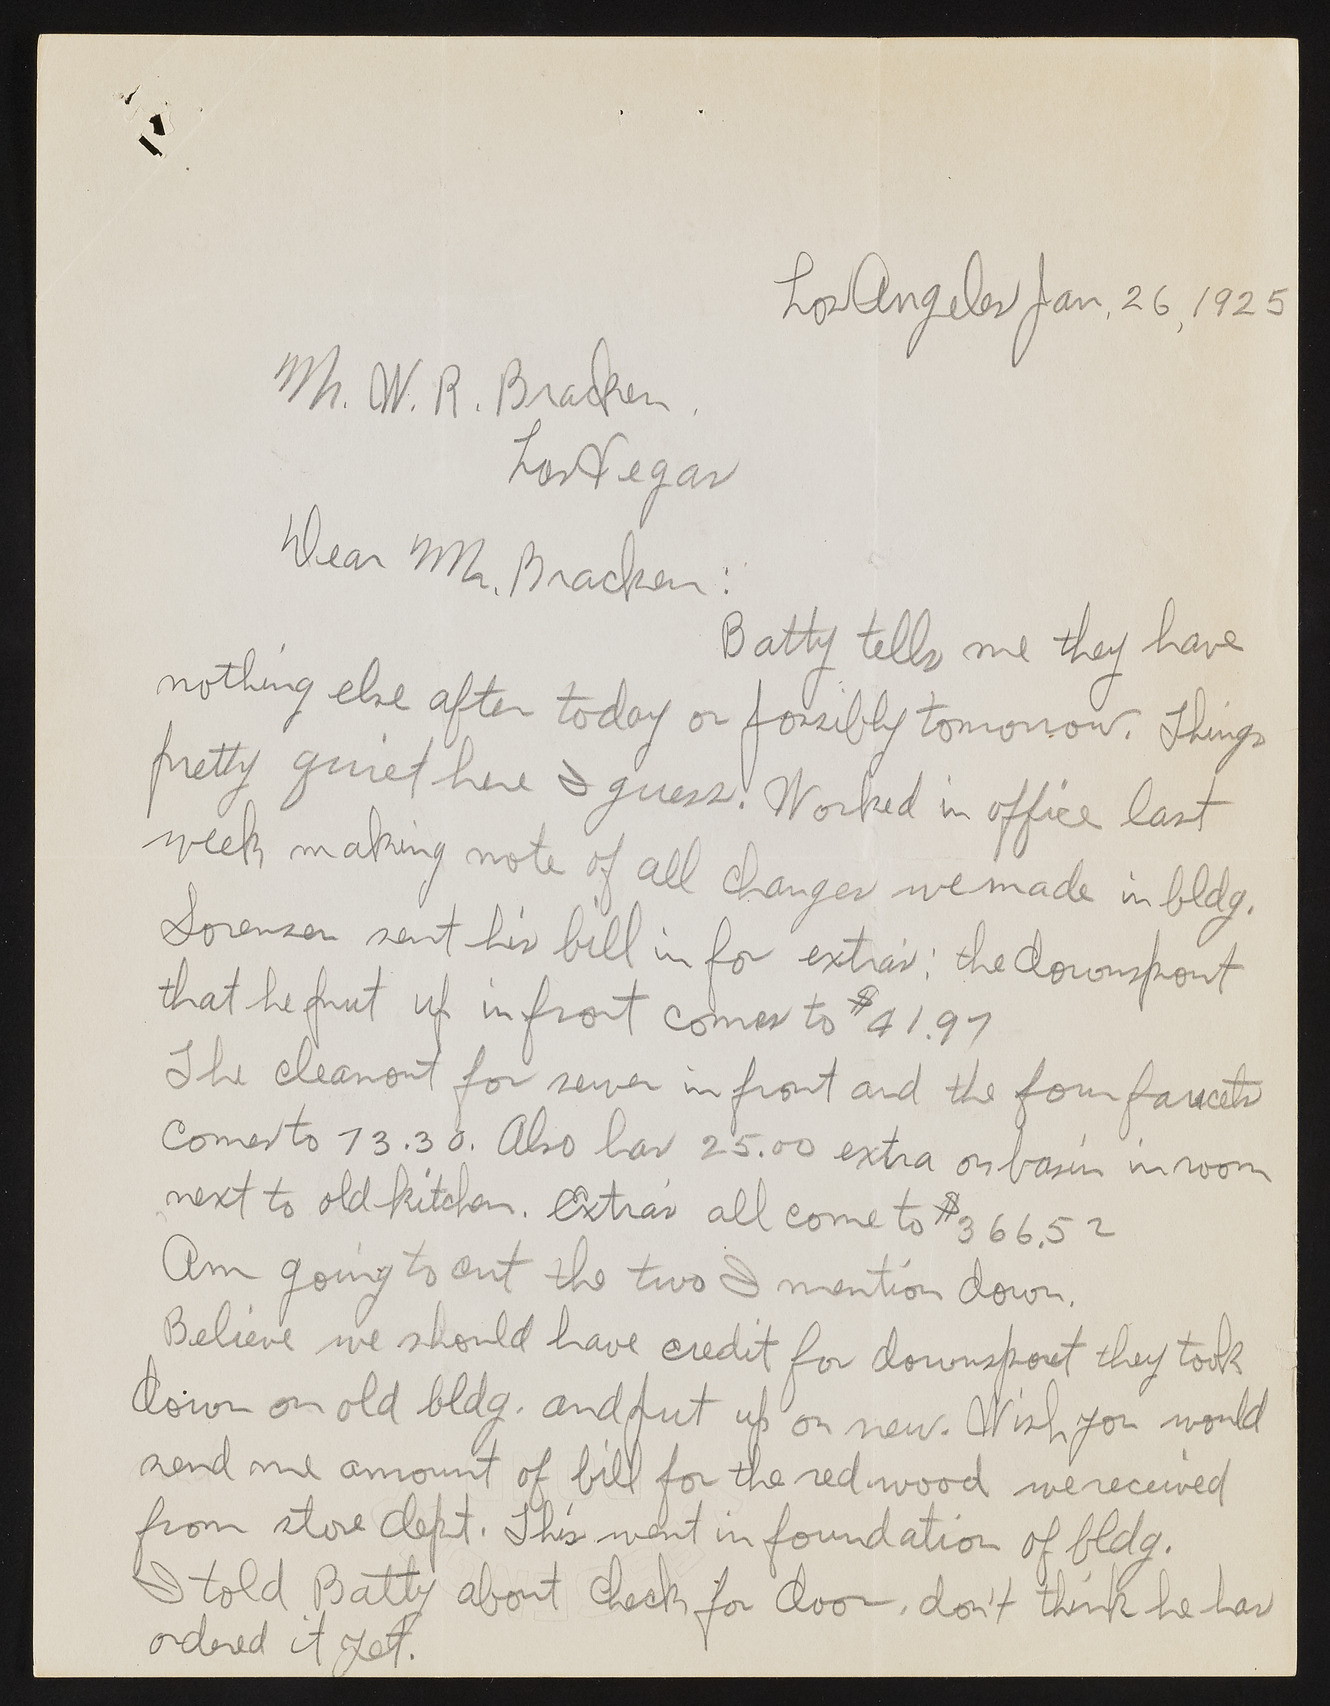 Los Angeles Jan. 26, 1925
Mr. W. R. Bracken.
Las Vegas
Dear Mr. Bracken:
Batty tells me they have
nothing else after today or possibly tomorrow. Things
pretty quiet here I guess. Worked in office last
week making note of all changes we made in bldg.
Sorensen sent his bill in for extras: the downspout
that he put up in front comes to $41.97
The cleanout for sewer in front and the four faucets
comes to 73.30. Also has 25.00 extra on basin in room
next to old kitchen. Extras all come to $366.52
Am going to cut the two I mention down.
Believe we should have credit for downspout they took
down on old bldg. and put up on new. Wish you would
send me amount of bill for the redwood we received
from store dept. This went in foundation of bldg.
I told Batty about check for door, don't think he has
ordered it yet.